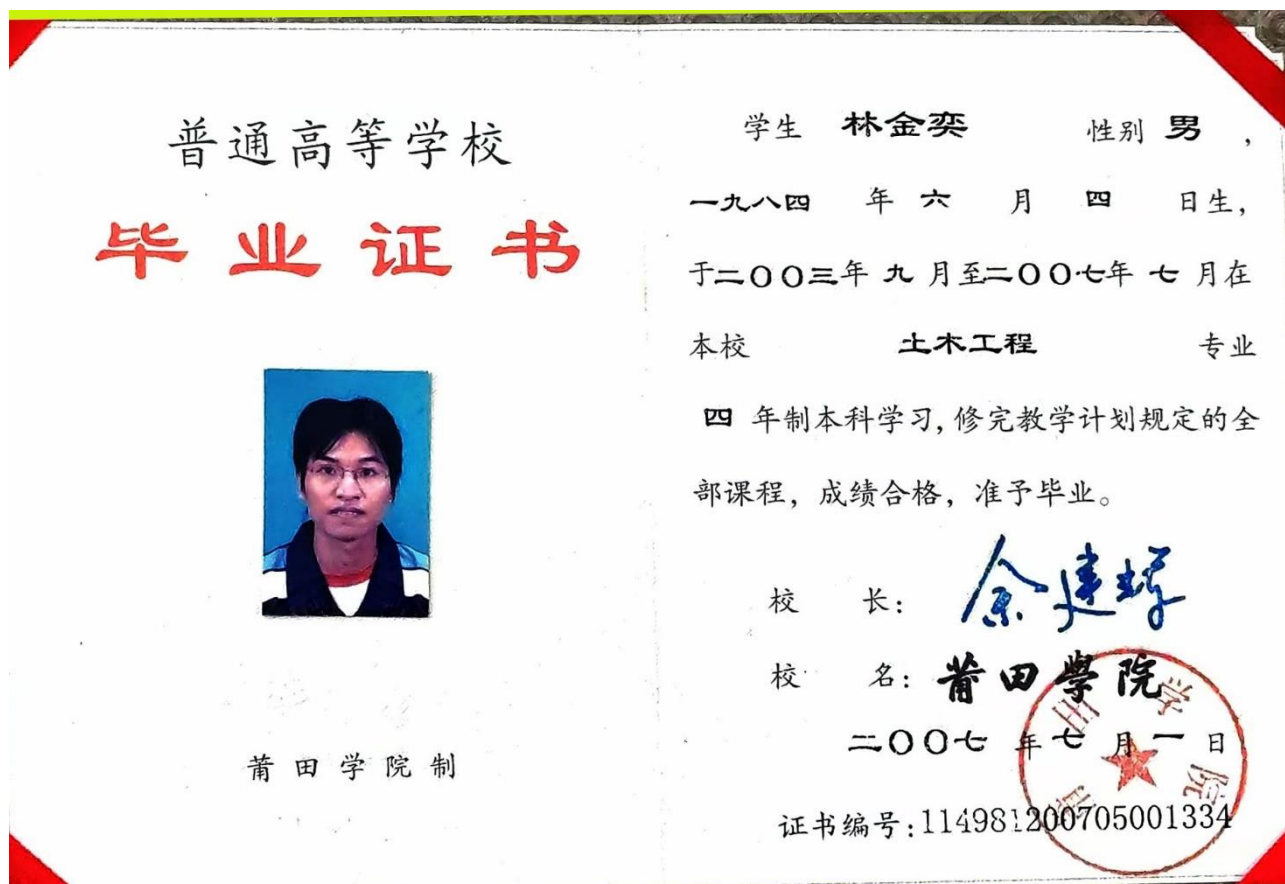 普通高等学校
毕业证书
莆田学院制
学生 林金奕 性别 男 ,
一九八四 年 六 月 四 日生,
于二〇〇三年 九 月至二〇〇七年 七 月在
本校 土木工程 专业
四 年制本科学习, 修完教学计划规定的全
部课程, 成绩合格, 准予毕业。
校 长: 余建辉
校 名: 莆田學院
二〇〇七 年 七 月 一 日
莆田学院
证书编号:114981200705001334